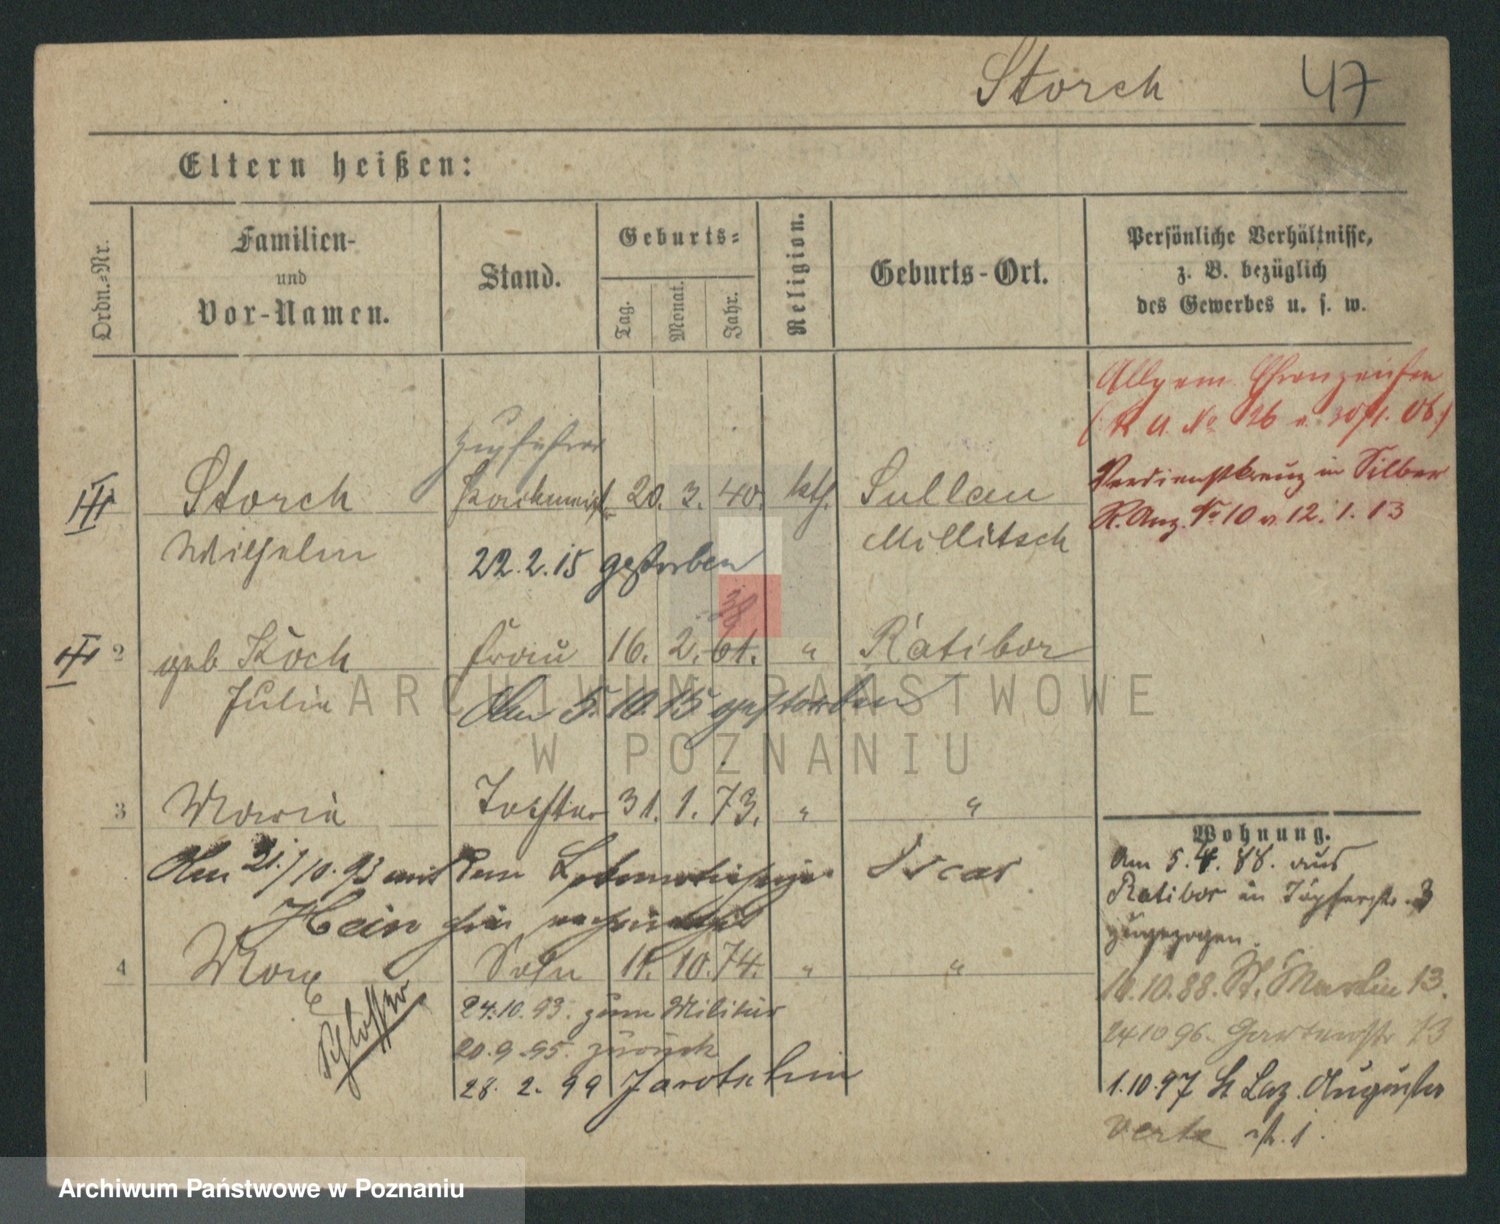 Storch 47
Eltern heißen:
Ordn.-Nr.
Familien-
und
Vor-Namen.
Stand.
Geburts-
Tag.
Monat.
Jahr.
Religion.
Geburts-Ort.
Persönliche Verhältnisse,
z. B. bezüglich
des Gewerbes u. s. w.
Allgem Ehrenzeichen
(R A. No 26 v. 30/1. 06)
Verdienstkreuz in Silber
R. Anz. No 10 v. 12. 1. 13
Zugführer
Storch 20. 3. 40. kth. Sullau
Wilhelm Millitsch
22. 2. 15 gestorben
38
2 geb Koch Frau 16. 2. 61. " Ratibor
Julie
Am 5. 10. 15 gestorben
3 Maria Tochter 31. 1. 73. " "
Am 21./10. 93 mit dem Oscar
Hein
4 Max Sohn 11. 10. 74. " "
Schlosser
24. 10. 93. zum Militär
20. 9. 95. zurück
28. 2. 99 Jarotschin
Wohnung.
Am 5. 4. 88. aus
Ratibor in Töpferstr. 3
zugezogen.
10. 88. St. Martin 13.
24 10 96. Gartenstr 13
1. 10. 97 St Laz. Augusta
verte str. 1
ARCHIWUM PAŃSTWOWE
W POZNANIU
Archiwum Państwowe w Poznaniu